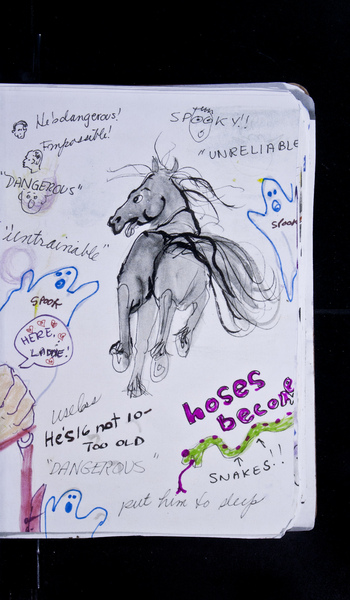 He's dangerous!
Impossible!
"DANGEROUS"
"untrainable"
SPOOKY!!
"UNRELIABLE
SPOOK
SPOOK
HERE,
LADDIE!
useless
He's 16 not 10-
TOO OLD
"DANGEROUS"
put him to sleep
hoses
become
SNAKES!!